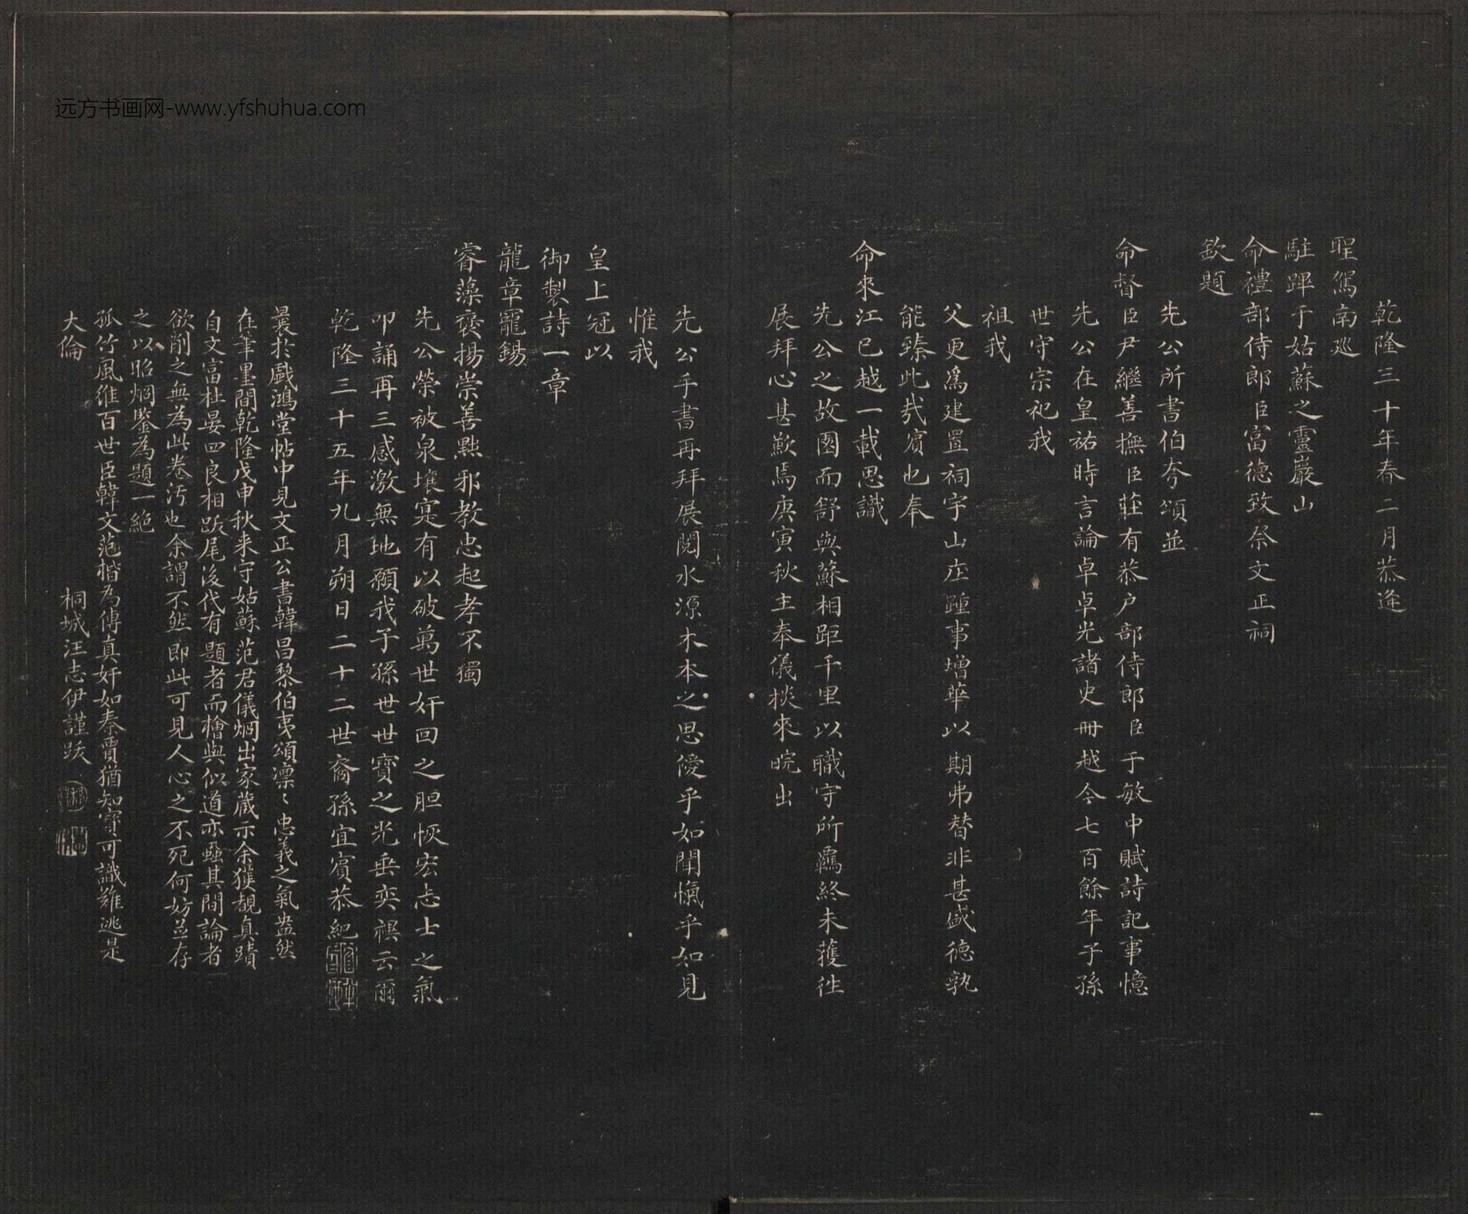 远方书画网-www.yfshuhua.com
乾隆三十年春二月恭逢
聖駕南巡
駐蹕于姑蘇之靈巖山
命禮部侍郎臣富德致祭文正祠
欽題
先公所書伯夷頌並
命督臣尹繼善撫臣莊有恭户部侍郎臣于敏中賦詩記事憶
先公在皇祐時言論卓卓光諸史冊越今七百餘年子孫
世守宗祀我
祖我
父更爲建置祠宇山庄踵事增華以期弗替非甚盛德孰
能臻此哉賓也奉
命來江已越一載思識
先公之故園而舒與蘇相距千里以職守所羈終未獲往
展拜心甚歉焉庚寅秋主奉儀掞來晥出
先公手書再拜展閱水源木本之思僾乎如聞愾乎如見
惟我
皇上冠以
御製詩一章
龍章寵錫
睿藻褒揚崇善黜邪教忠起孝不獨
先公榮被泉壤寔有以破萬世奸回之胆恢宏志士之氣
叩誦再三感激無地願我子孫世世寶之光垂奕禩云爾
乾隆三十五年九月朔日二十二世裔孫宜賓恭紀
曩於戲鴻堂帖中見文正公書韓昌黎伯夷頌凛〻忠義之氣盎然
在筆墨間乾隆戊申秋来守姑蘇范君儀炯出家藏示余獲覩真蹟
自文富杜晏四良相跋尾後代有題者而檜與似道亦蝨其間論者
欲削之無為此卷汚也余謂不然即此可見人心之不死何妨並存
之以昭炯鉴為題一絶
孤竹風維百世臣韓文范楷為傳真奸如秦賈猶知寶可識難逃是
大倫
桐城汪志伊謹跋